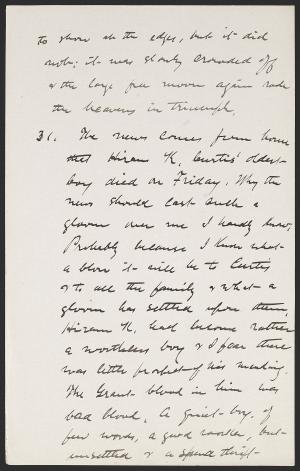 to show at the edges, but it did
not; it was slowly crowded off
& the large free moon again rode
the heavens in triumph.
31. The news comes from home
that Hiram K. Curtis' oldest
boy died on Friday. Why the
news should cast such a
gloom over me I hardly know.
Probably because I know what
a blow it will be to Curtis
& to all the family & what a
gloom has settled upon them.
Hiram K. had become rather
a worthless boy & I fear there
was little prospect of his mending.
The Grant blood in him was
bad blood. A quiet boy, of
few words, a good worker, but
unsettled & a spend thrift